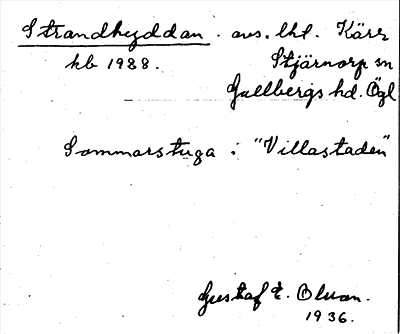 Strandhyddan. avs. lht. Kärr
kb 1928. Stjärnorp sn
Gullbergs hd. Ögl
Sommarstuga i "Villastaden"
Gustaf E. Olson.
1936.